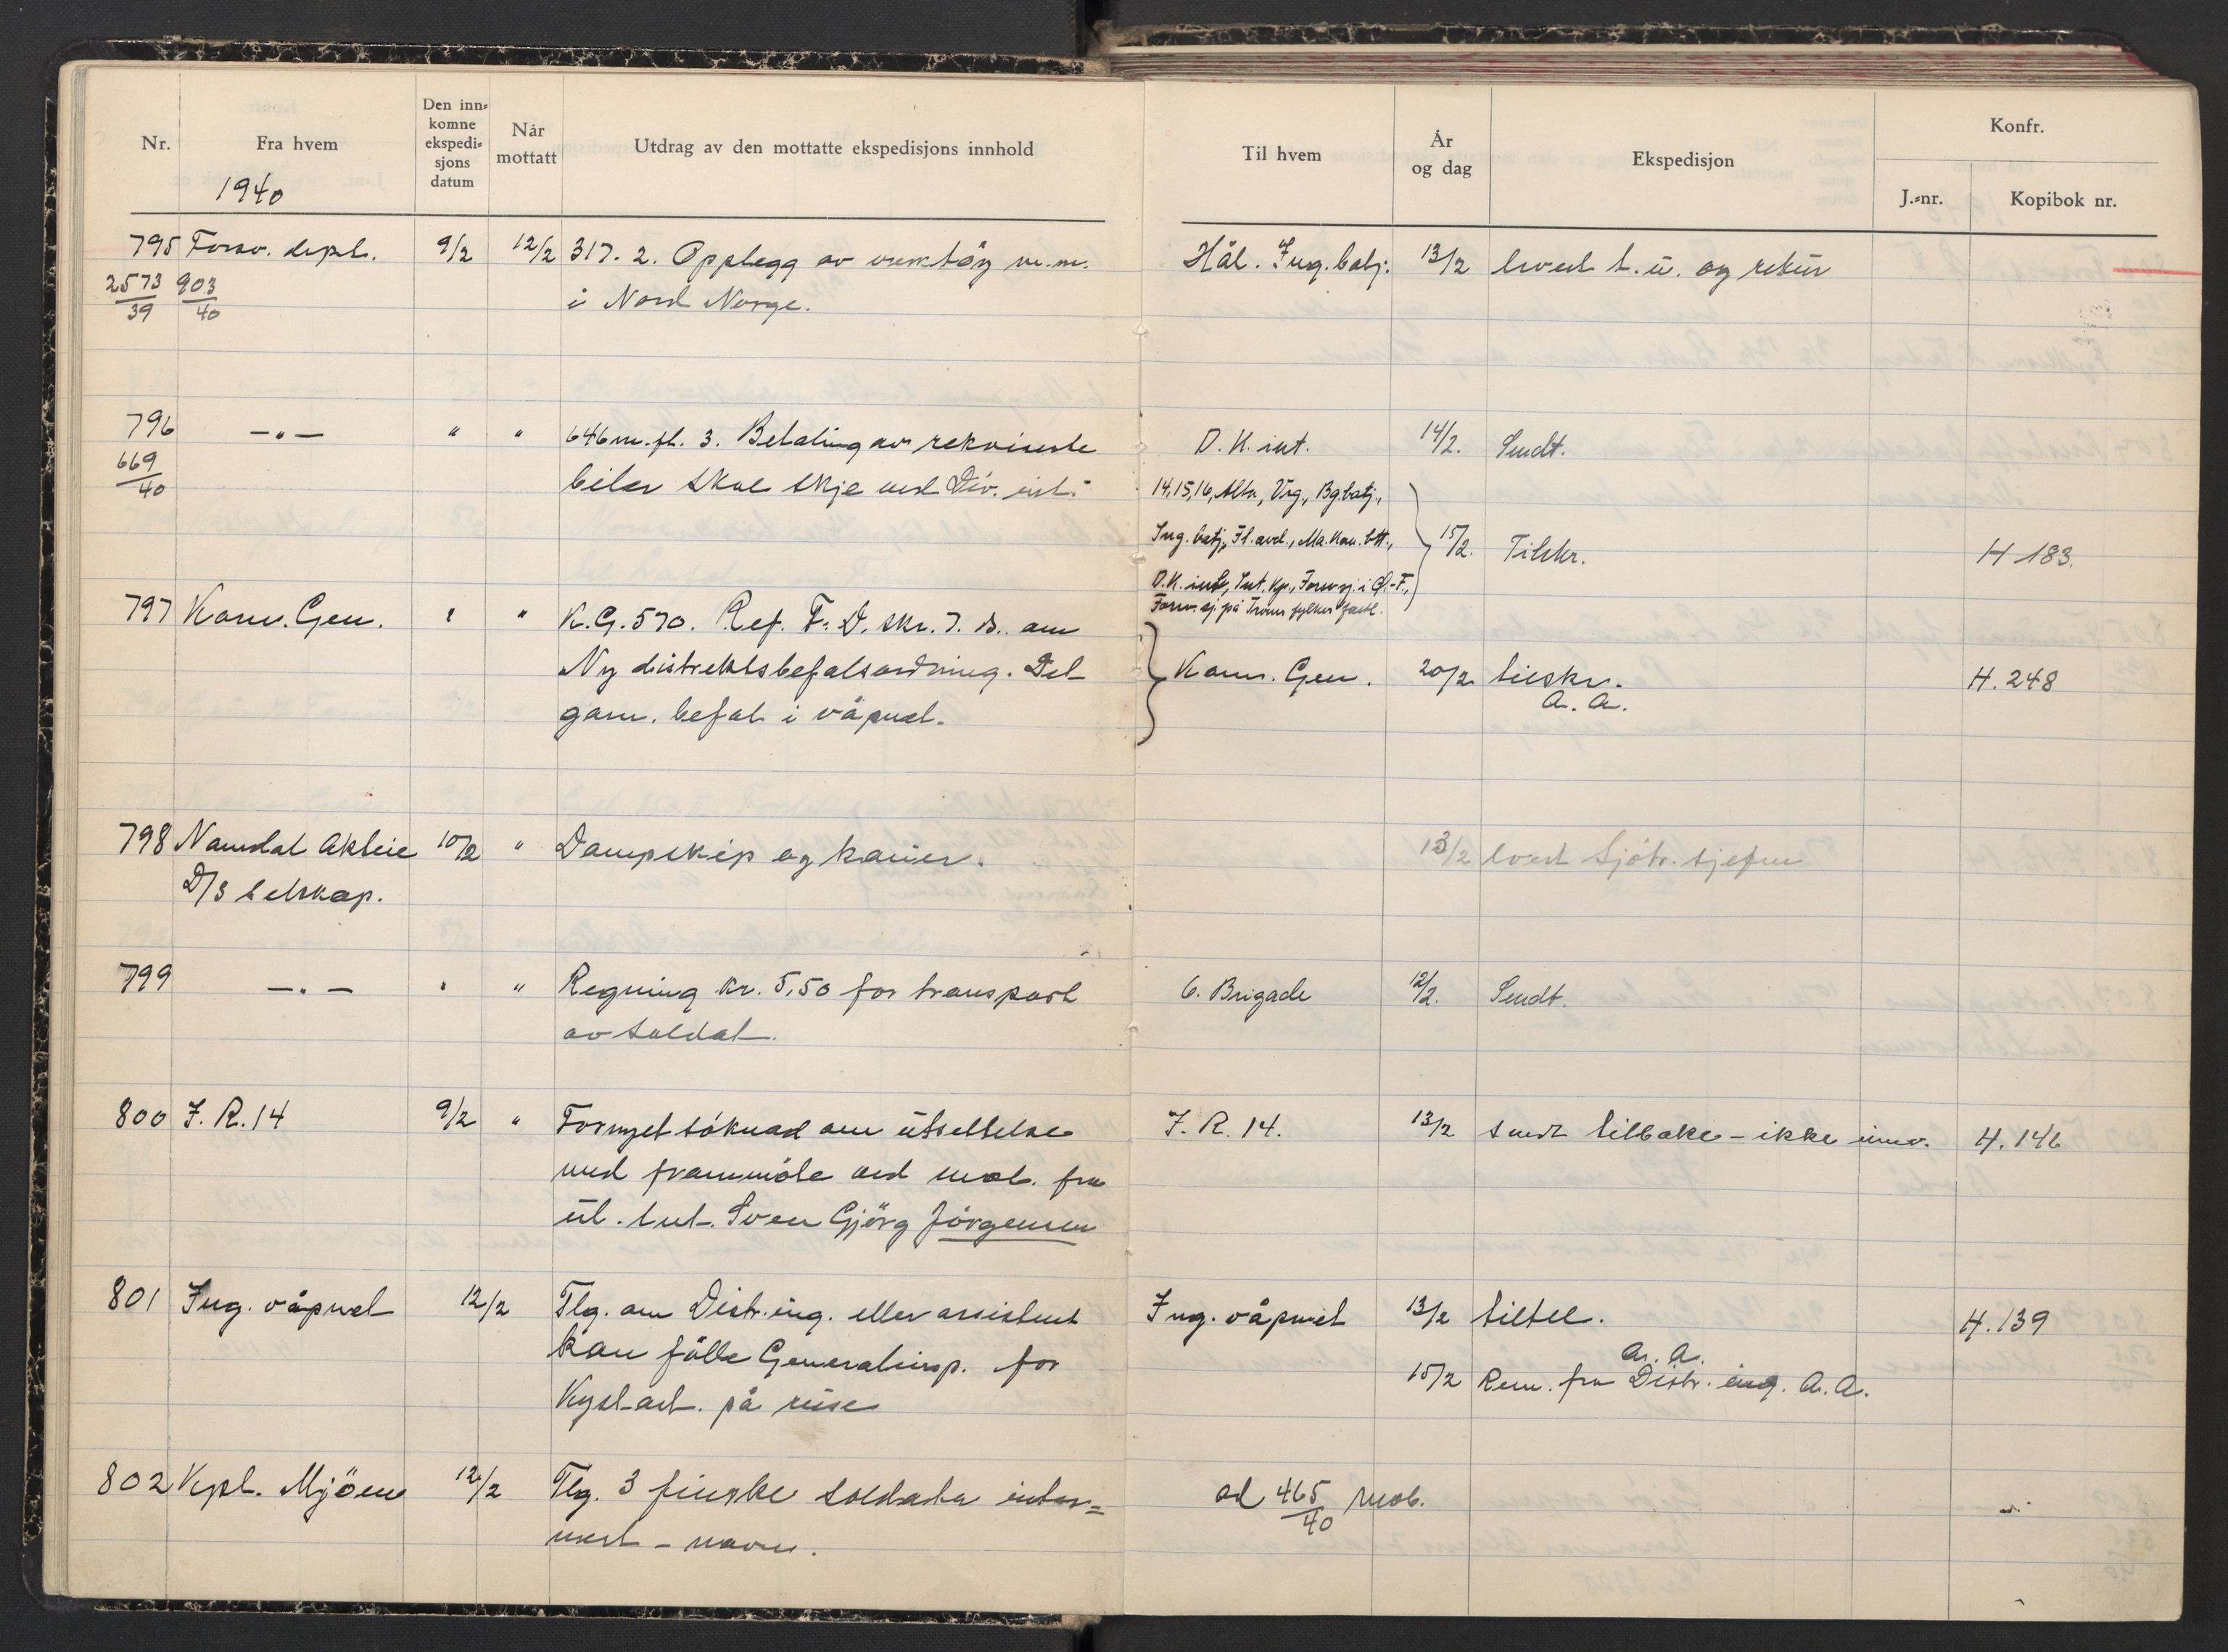 Nr. Fra hvem Den inn-komne ekspedi-sjons datum Når mottatt Utdrag av den mottatte ekspedisjons innhold Til hvem År og dag Ekspedisjon Konfr.
J.-nr. Kopibok nr.
1940
795 Forsv. dept. 9/2 12/2 317. 2. Opplegg av verktöy m.m. Hål. Ing. batj. 13/2 t. u. og retur
2573/39 903/40 i Nord Norge.
796 —"— " " 646 m. fl. 3. Betaling av rekvirerte D. K. int. 14/2. Sendt.
669/40 biler skal skje ved Div. int. 14, 15, 16, Alta, Vrg., Bg. batj.,
Ing. batj., Fl. avd., Ma. Kan. btt., 15/2. Tilskr. H 183.
D. K. int., Int. kp., Forv. sj. i Ø.-F.,
Forv. sj. på Troms fylkes
797 Kom. Gen. " " K. G. 570. Ref. F. D. skr. 7. ds. om
Ny distriktsbefalsordning. Det Kom. Gen. 20/2 tilskr. H. 248
A. A.
gam. befal i våpnet.
798 Namdal Aktie 10/2 " Dampskip og kaier. 13/2 Sjötr. sjefen
D/S selskap.
799 —"— " " Regning kr. 5,50 for transport 6. Brigade 12/2. Sendt.
av soldat.
800 I. R. 14 9/2 " Fornyet söknad om utsettelse I. R. 14. 13/2 sendt tilbake - ikke innv. H. 146
med frammöte ved mob. fra
Sven Gjörg Jörgensen
801 Ing. våpnet 12/2 Tlg. om Distr. ing. eller assistent Ing. våpnet 13/2 tiltel. H. 139
kan fölle Generalinsp. for A. A.
Kyst art. på reise 15/2 Rem. fra Distr. ing. A. A.
802 Kpt. Mjöen 12/2 Tlg. 3 finske soldater inter= ad 465/40 mob.
nert - navn.